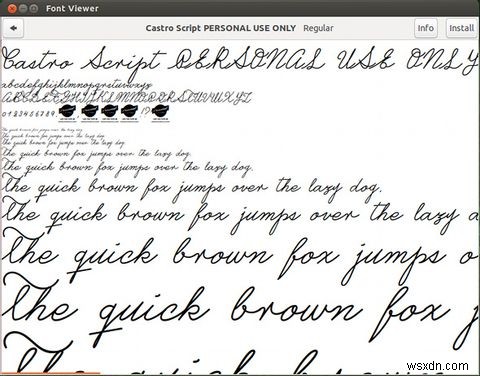 Font Viewer
Castro Script PERSONAL USE ONLY Regular
Info
Install
Castro Script PERSONAL USE ONLY
abcdefghijklmnopqrstuvwxyz
ABCDEFGHIJKLMNOPQRSTUVWXYZ
0123456789. , ! ?
The quick brown fox jumps over the lazy dog.
The quick brown fox jumps over the lazy dog.
The quick brown fox jumps over the lazy dog.
The quick brown fox jumps over the lazy dog.
The quick brown fox jumps over the lazy dog.
The quick brown fox jumps over the lazy dog.
The quick brown fox jumps over the lazy d
The quick brown fox jumps o
The quick brown fox j
wsxdn.com